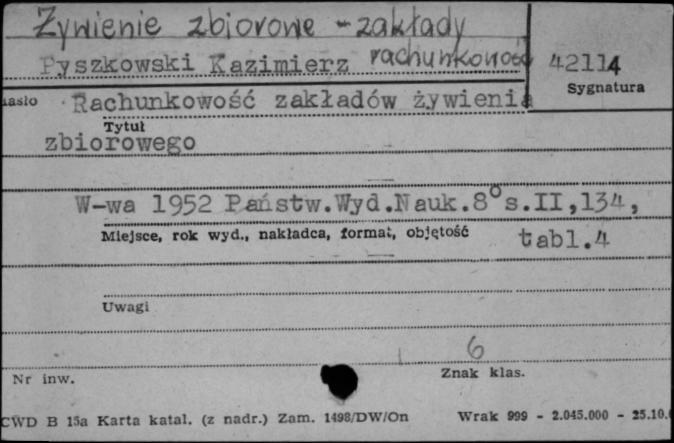 Żywienie zbiorowe - zakłady
rachunkowość
Pyszkowski Kazimierz
42114
Sygnatura
Rachunkowość zakładów żywienia
Tytuł
zbiorowego
W-wa 1952 Państw.Wyd.Nauk.8° s.II,134,
Miejsce, rok wyd., nakładca, format, objętość
tabl.4
Uwagi
6
Nr inw.
Znak klas.
CWD B 15a Karta katal. (z nadr.) Zam. 1498/DW/On Wrak 999 - 2.045.000 - 25.10.